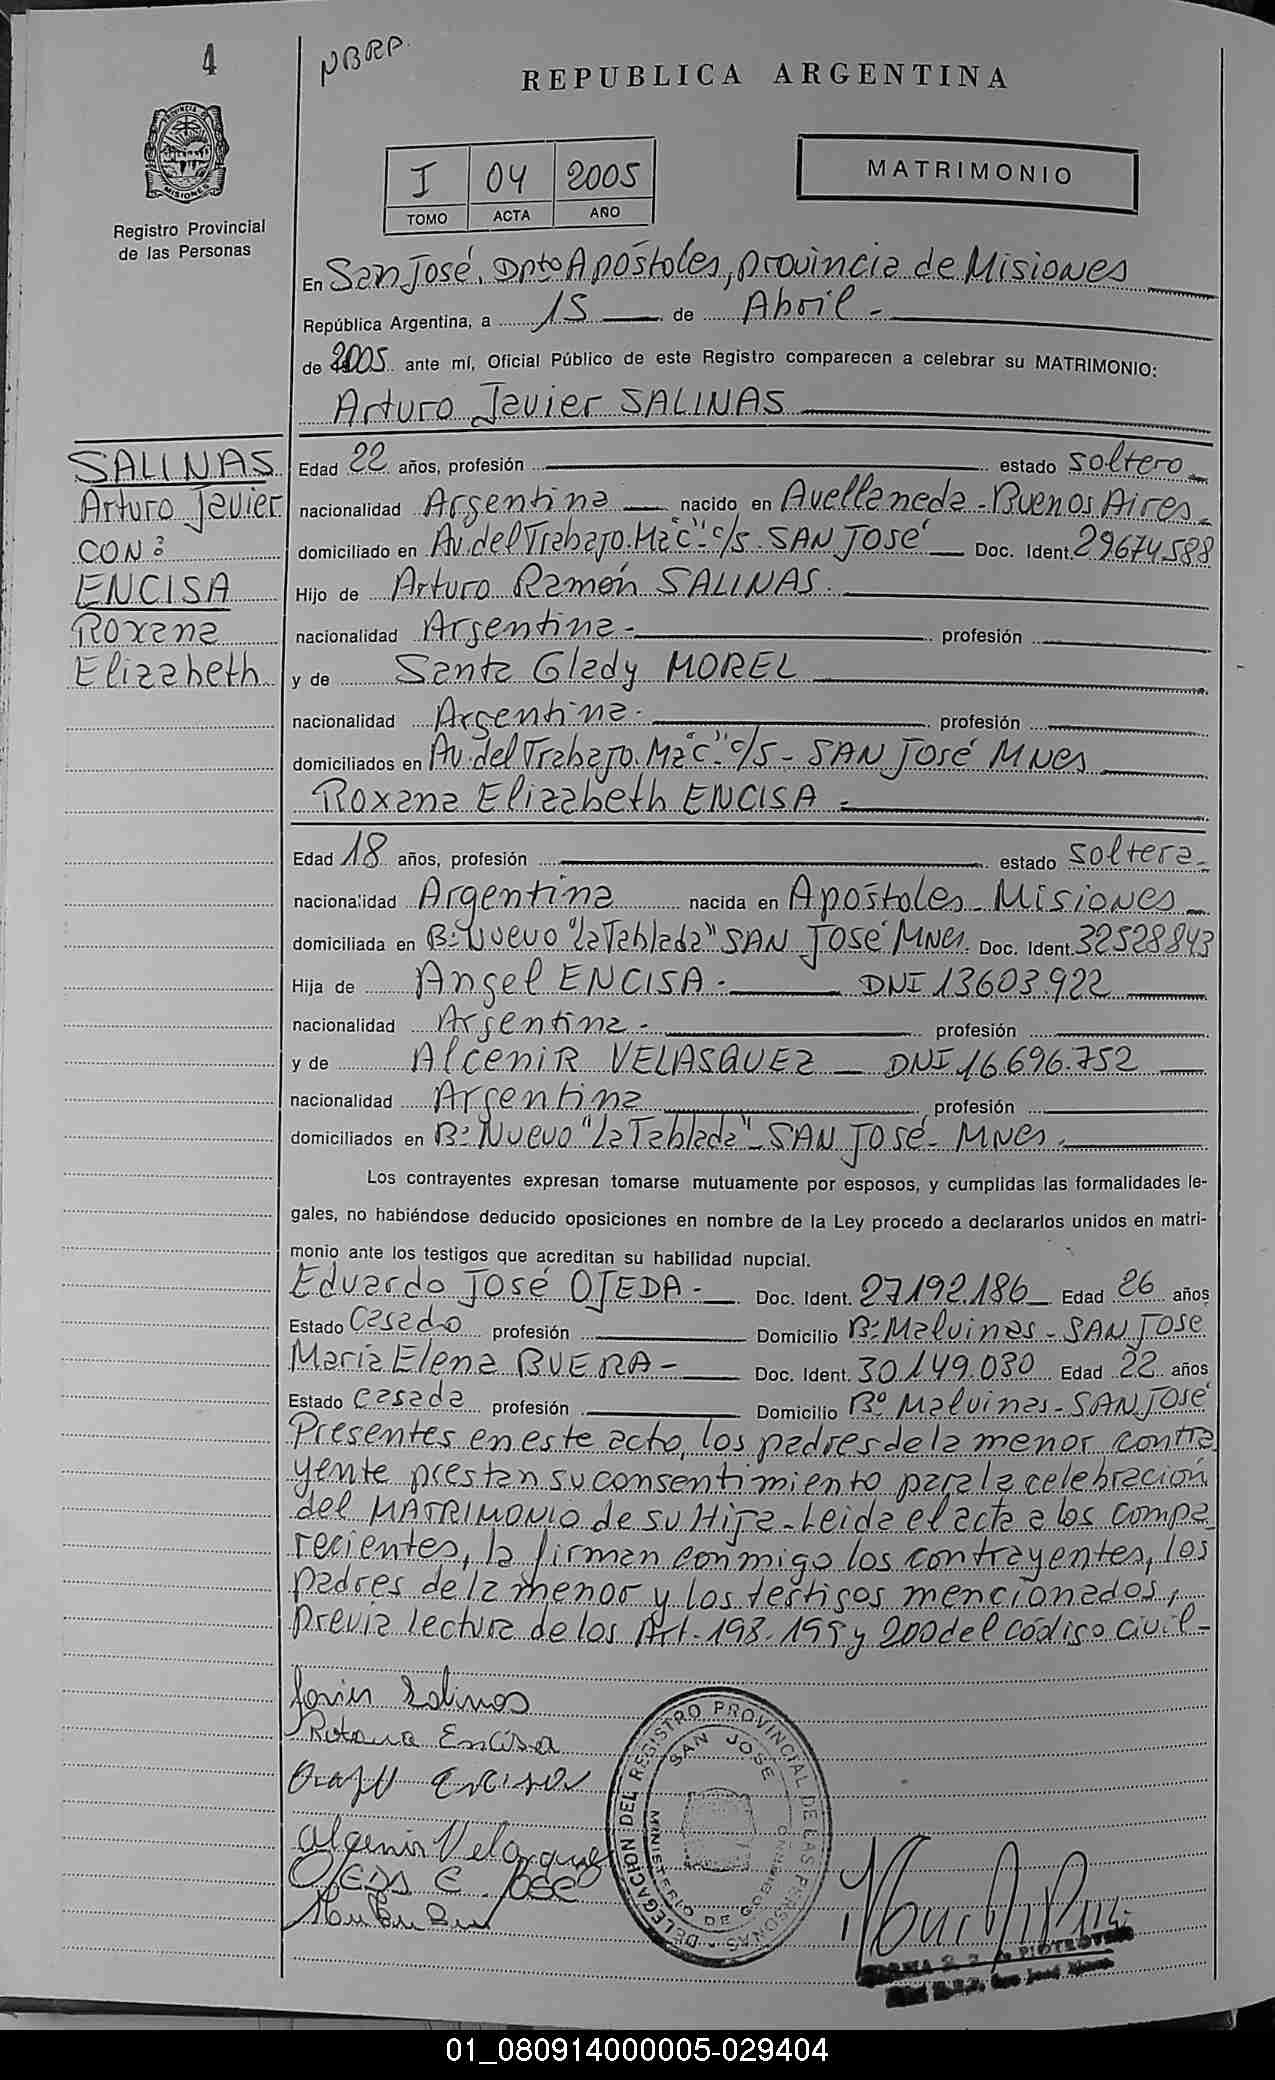 4
NBRP.
REPUBLICA ARGENTINA
PROVINCIA
MISIONES
Registro Provincial
de las Personas
I 04 2005
TOMO ACTA AÑO
MATRIMONIO
En San José, Dpto Apóstoles, provincia de Misiones
República Argentina, a 15 de Abril.-
de 2005 ante mí, Oficial Público de este Registro comparecen a celebrar su MATRIMONIO:
Arturo Javier SALINAS
SALINAS
Arturo Javier
CON:
ENCISA
Roxana
Elizabeth
Edad 22 años, profesión estado soltero
nacionalidad Argentina nacido en Avellaneda - Buenos Aires
domiciliado en Av. del Trabajo. Mz "C" - c/5 - SAN JOSÉ Doc. Ident. 29674588
Hijo de Arturo Ramón SALINAS.
nacionalidad Argentina.- profesión
y de Santa Glady MOREL
nacionalidad Argentina.- profesión
domiciliados en Av. del Trabajo. Mz "C" - c/5 - SAN JOSÉ Mnes
Roxana Elizabeth ENCISA -
Edad 18 años, profesión estado soltera
nacionalidad Argentina nacida en Apóstoles - Misiones
domiciliada en B: Nuevo "La Tablada" SAN JOSÉ Mnes. Doc. Ident. 32528843
Hija de Angel ENCISA.- DNI 13603.922
nacionalidad Argentina.- profesión
y de Alcenir VELASQUEZ DNI 16.696.752
nacionalidad Argentina profesión
domiciliados en B: Nuevo "La Tablada" - SAN JOSÉ - Mnes.
Los contrayentes expresan tomarse mutuamente por esposos, y cumplidas las formalidades le-
gales, no habiéndose deducido oposiciones en nombre de la Ley procedo a declararlos unidos en matri-
monio ante los testigos que acreditan su habilidad nupcial.
Eduardo José OJEDA.- Doc. Ident. 27192.186 Edad 26 años
Estado Casado profesión Domicilio B: Malvinas - SAN JOSÉ
María Elena BUERA - Doc. Ident. 30.149.030 Edad 22 años
Estado Casada profesión Domicilio Bº Malvinas - SAN JOSÉ
Presentes en este acto, los padres de la menor contra
yente prestan su consentimiento para la celebración
del MATRIMONIO de su Hija - Leida el acta a los compa
recientes, la firman conmigo los contrayentes, los
padres de la menor y los testigos mencionados,
previa lectura de los Art. 198 - 199 y 200 del código civil -
Javier Salinas
Roxana Encisa
Encisa
Alcenir Velasquez
OJEDA E. JOSE
DELEGACION DEL REGISTRO PROVINCIAL DE LAS PERSONAS
SAN JOSE
MINISTERIO DE GOBIERNO
01_080914000005-029404